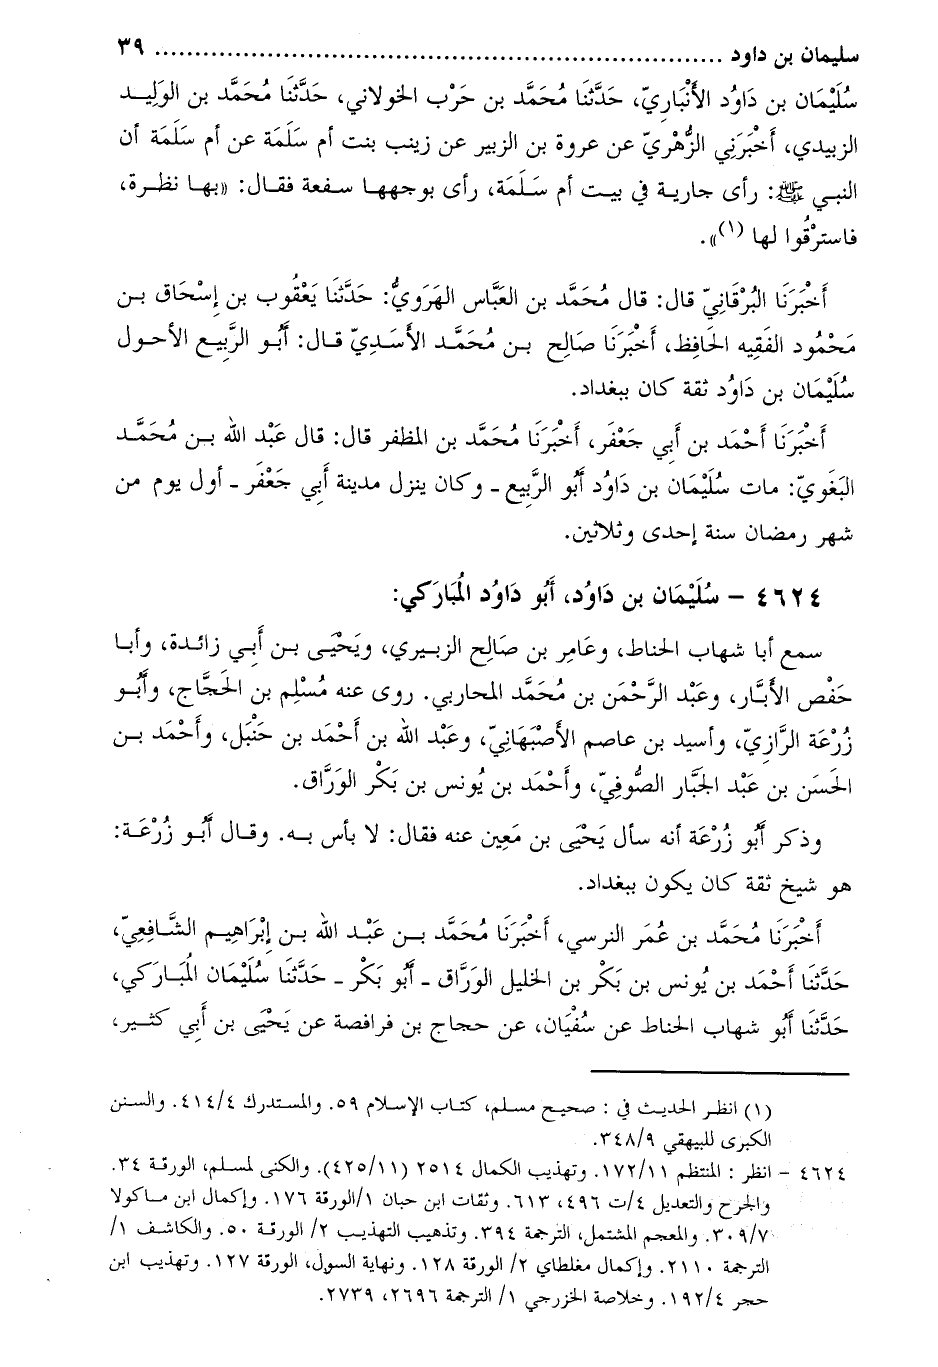 سليمان بن داود ........................................................................ ٣٩
سُلَيْمَان بن دَاوُد الأَنْبَارِيّ، حَدَّثَنَا مُحَمَّد بن حَرْب الخولاني، حَدَّثَنَا مُحَمَّد بن الوَلِيد
الزبيدي، أَخْبَرَنِي الزُّهْرِيّ عن عروة بن الزبير عن زينب بنت أم سَلَمَة عن أم سَلَمَة أن
النبي ﷺ: رأى جارية في بيت أم سَلَمَة، رأى بوجهها سفعة فقال: «بها نظرة،
فاسترْقُوا لها (١)».
أَخْبَرَنَا البُرْقَانِيّ قال: قال مُحَمَّد بن العَبَّاس الهَرَوِيُّ: حَدَّثَنَا يَعْقُوب بن إِسْحَاق بن
مَحْمُود الفَقِيه الحَافِظ، أَخْبَرَنَا صَالِح بن مُحَمَّد الأَسَدِيّ قال: أَبُو الرَّبِيع الأحول
سُلَيْمَان بن دَاوُد ثقة كان ببغداد.
أَخْبَرَنَا أَحْمَد بن أَبِي جَعْفَر، أَخْبَرَنَا مُحَمَّد بن المظفر قال: قال عَبْد الله بن مُحَمَّد
البَغَوِيّ: مات سُلَيْمَان بن دَاوُد أَبُو الرَّبِيع ـ وكان ينزل مدينة أَبِي جَعْفَر ـ أول يوم من
شهر رمضان سنة إحدى وثلاثين.
٤٦٢٤ – سُلَيْمَان بن دَاوُد، أَبُو دَاوُد المُبَارَكي:
سمع أبا شهاب الحناط، وعَامِر بن صَالِح الزبيري، ويَحْيَى بن أَبِي زائدة، وأَبا
حَفْص الأَبَّار، وعَبْد الرَّحْمَن بن مُحَمَّد المحاربي. روى عنه مُسْلِم بن الحَجَّاج، وأَبُو
زُرْعَة الرَّازِيّ، وأسيد بن عاصم الأَصْبَهَانِيّ، وعَبْد الله بن أَحْمَد بن حَنْبَل، وأَحْمَد بن
الحَسَن بن عَبْد الجَبَّار الصُّوفِيّ، وأَحْمَد بن يُونس بن بَكْر الوَرَّاق.
وذكر أَبُو زُرْعَة أنه سأل يَحْيَى بن مَعِين عنه فقال: لا بأس به. وقال أَبُو زُرْعَة:
هو شيخ ثقة كان يكون ببغداد.
أَخْبَرَنَا مُحَمَّد بن عُمَر النرسي، أَخْبَرَنَا مُحَمَّد بن عَبْد الله بن إِبْرَاهِيم الشَّافِعِيّ،
حَدَّثَنَا أَحْمَد بن يُونس بن بَكْر بن الخليل الوَرَّاق ـ أَبُو بَكْر ـ حَدَّثَنَا سُلَيْمَان المُبَارَكي،
حَدَّثَنَا أَبُو شهاب الحناط عن سُفْيَان، عن حجاج بن فرافصة عن يَحْيَى بن أَبِي كثير،
(١) انظر الحديث في : صحيح مسلم، كتاب الإسلام ٥٩. والمستدرك ٤١٤/٤. والسنن
الكبرى للبيهقي ٣٤٨/٩.
٤٦٢٤ – انظر : المنتظم ١٧٢/١١. وتهذيب الكمال ٢٥١٤ (٤٢٥/١١). والكنى لمسلم، الورقة ٣٤.
والجرح والتعديل ٤/ت ٤٩٦، ٦١٣. وثقات ابن حبان ١/الورقة ١٧٦. وإكمال ابن ماكولا
٣٠٩/٧. والمعجم المشتمل، الترجمة ٣٩٤. وتذهيب التهذيب ٢/ الورقة ٥٠. والكاشف ١/
الترجمة ٢١١٠. وإكمال مغلطاي ٢/ الورقة ١٢٨. ونهاية السول، الورقة ١٢٧. وتهذيب ابن
حجر ١٩٢/٤. وخلاصة الخزرجي ١/ الترجمة ٢٦٩٦، ٢٧٣٩.